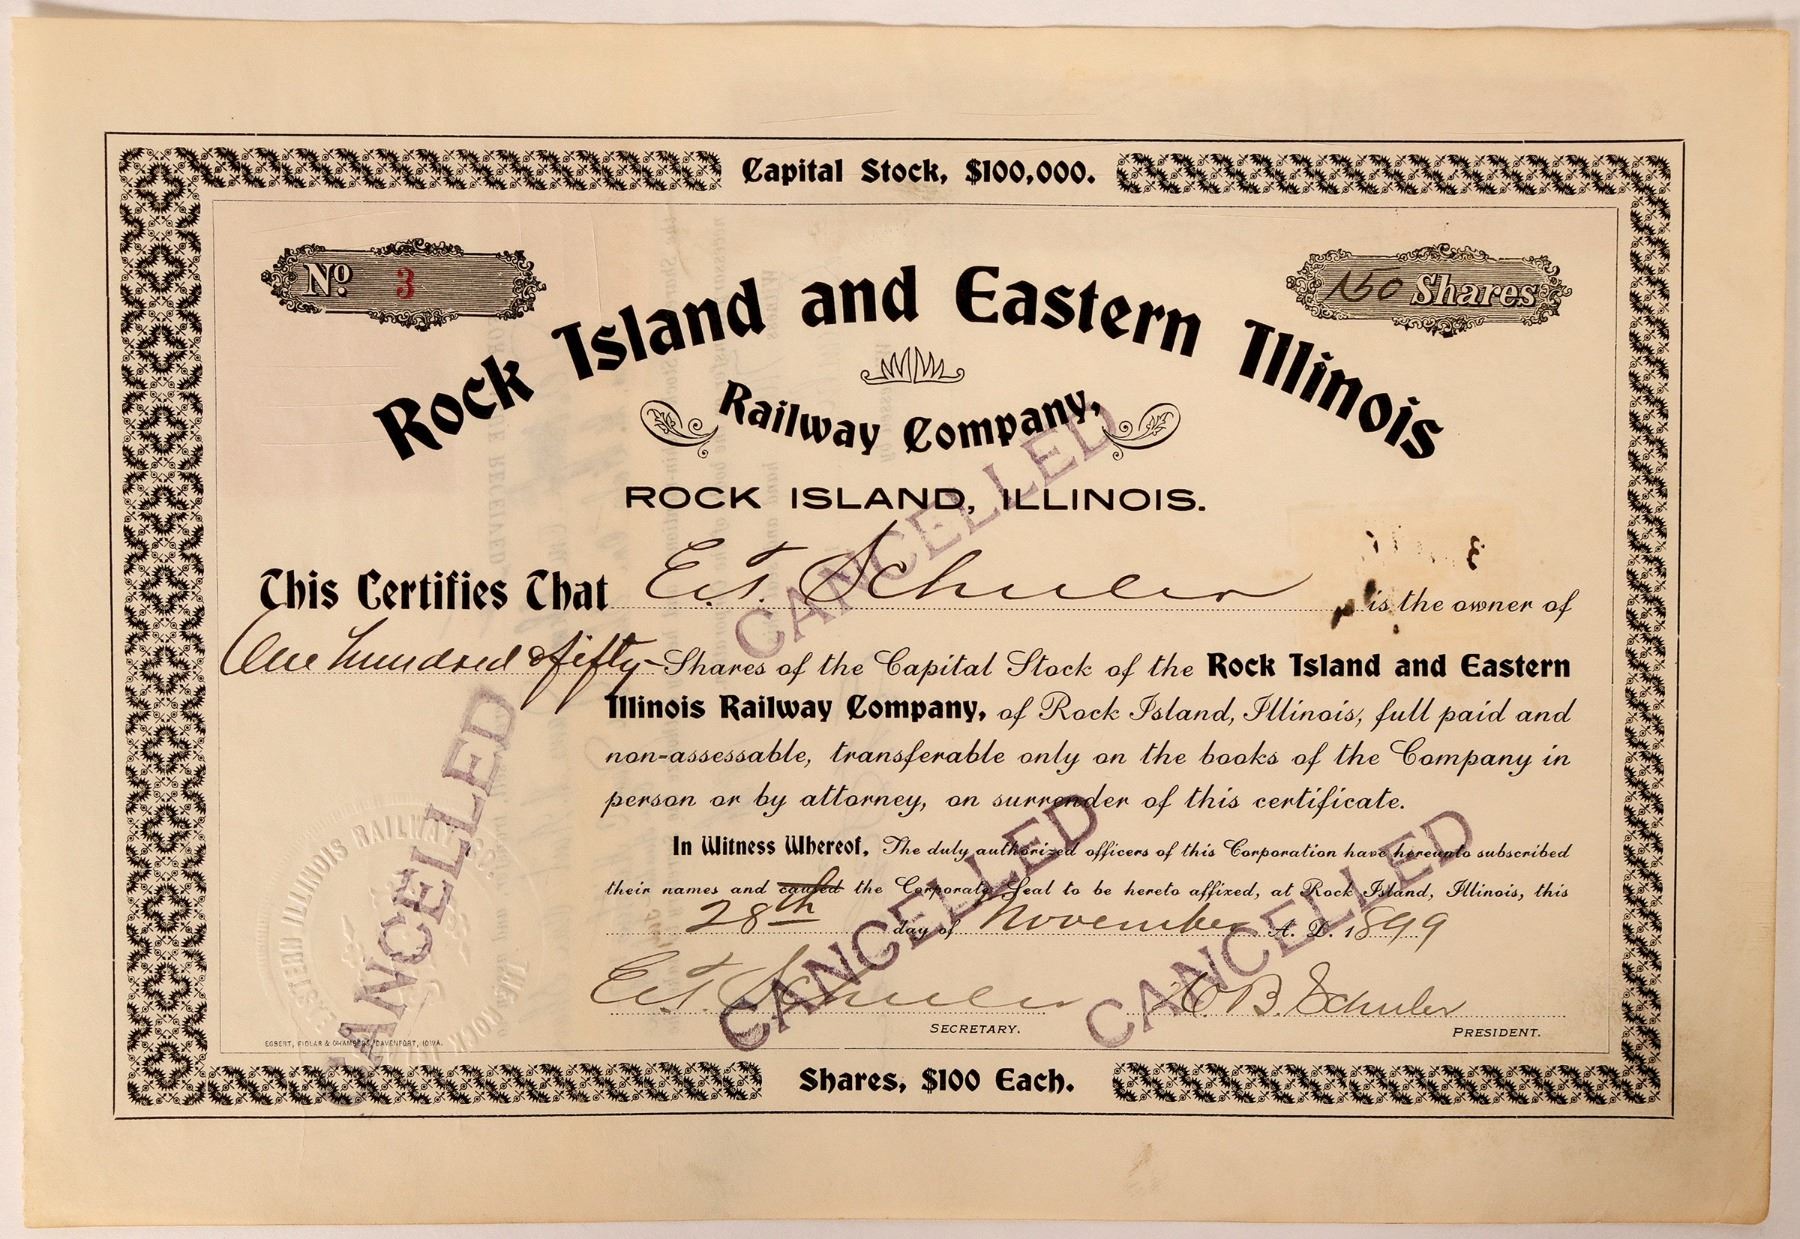 Capital Stock, $100,000.
No. 3
150 Shares
Rock Island and Eastern Illinois
Railway Company,
ROCK ISLAND, ILLINOIS.
This Certifies That E.T. Schuler is the owner of
One hundred & fifty Shares of the Capital Stock of the Rock Island and Eastern
Illinois Railway Company, of Rock Island, Illinois, full paid and
non-assessable, transferable only on the books of the Company in
person or by attorney, on surrender of this certificate.
In Witness Whereof, The duly authorized officers of this Corporation have hereunto subscribed
their names and caused the Corporate Seal to be hereto affixed, at Rock Island, Illinois, this
28th day of November A. D. 1899
E.T. Schuler
SECRETARY.
B. Schuler
PRESIDENT.
EGBERT, FIDLAR & CHAMBERS, DAVENPORT, IOWA.
Shares, $100 Each.
CANCELLED
CANCELLED
CANCELLED
CANCELLED
EASTERN ILLINOIS RAILWAY CO.